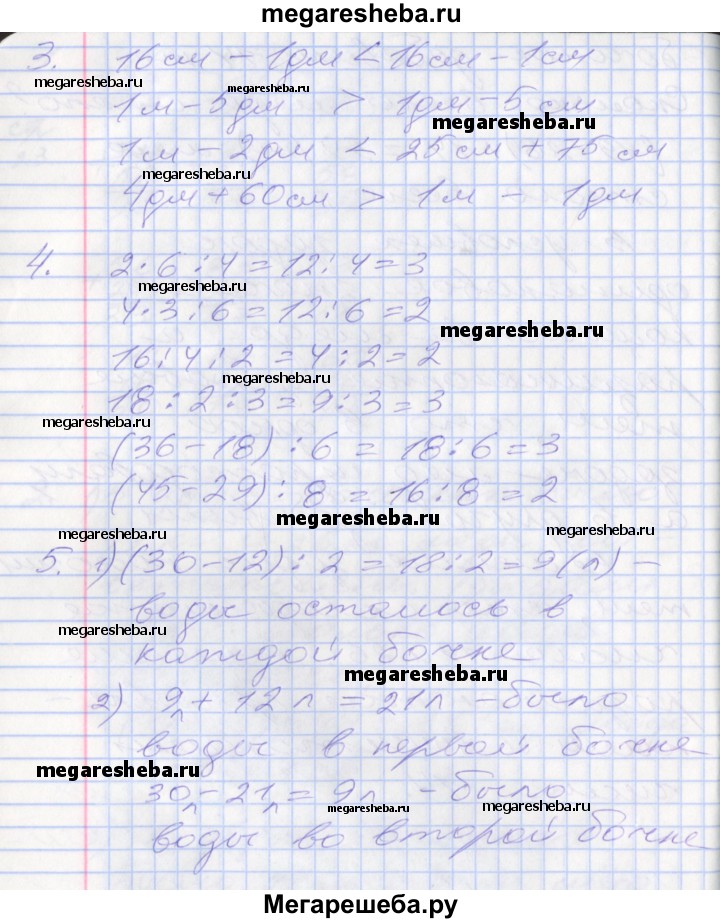 megaresheba.ru
3. 16см - 1дм < 16см - 1см
megaresheba.ru
megaresheba.ru
1м - 5дм > 1дм - 5см
megaresheba.ru
1м - 2дм < 25см + 75см
megaresheba.ru
4дм + 60см > 1м - 1дм
4. 2·6:4 = 12:4 = 3
megaresheba.ru
4·3:6 = 12:6 = 2
megaresheba.ru
16:4:2 = 4:2 = 2
megaresheba.ru
18:2:3 = 9:3 = 3
megaresheba.ru
(36-18):6 = 18:6 = 3
(45-29):8 = 16:8 = 2
megaresheba.ru
megaresheba.ru
megaresheba.ru
5. 1) (30-12):2 = 18:2 = 9(л) -
воды осталось в
megaresheba.ru
каждой бочке
megaresheba.ru
2) 9л + 12л = 21л - было
воды в первой бочке
megaresheba.ru
30л - 21л = 9л - было
megaresheba.ru
megaresheba.ru
воды во второй бочке
Мегарешеба.ру